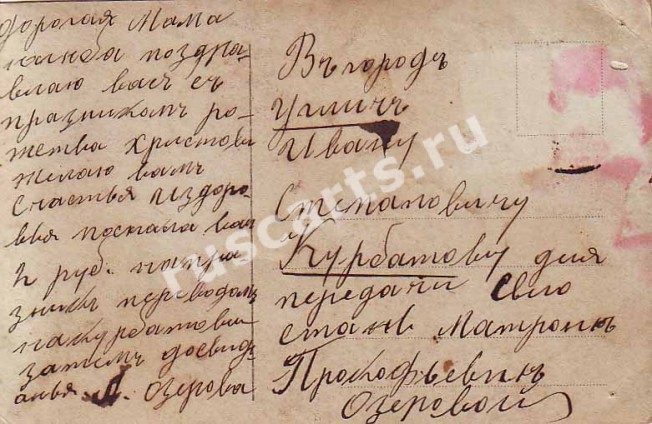 Дорогая Мама
поздра
вляю васъ съ
празникомъ ро
жества христова
желаю вамъ
счастья издоро
вья послала вам
2 руб. напра
зникъ переводомъ
накурбатова
затемъ досвид
анья Л. Озерова
Въгородъ
Угличъ
Ивану
Степановичу
Курбатову для
передачи
Матроне
Прокофьевне
Озеровой
ruscarts.ru